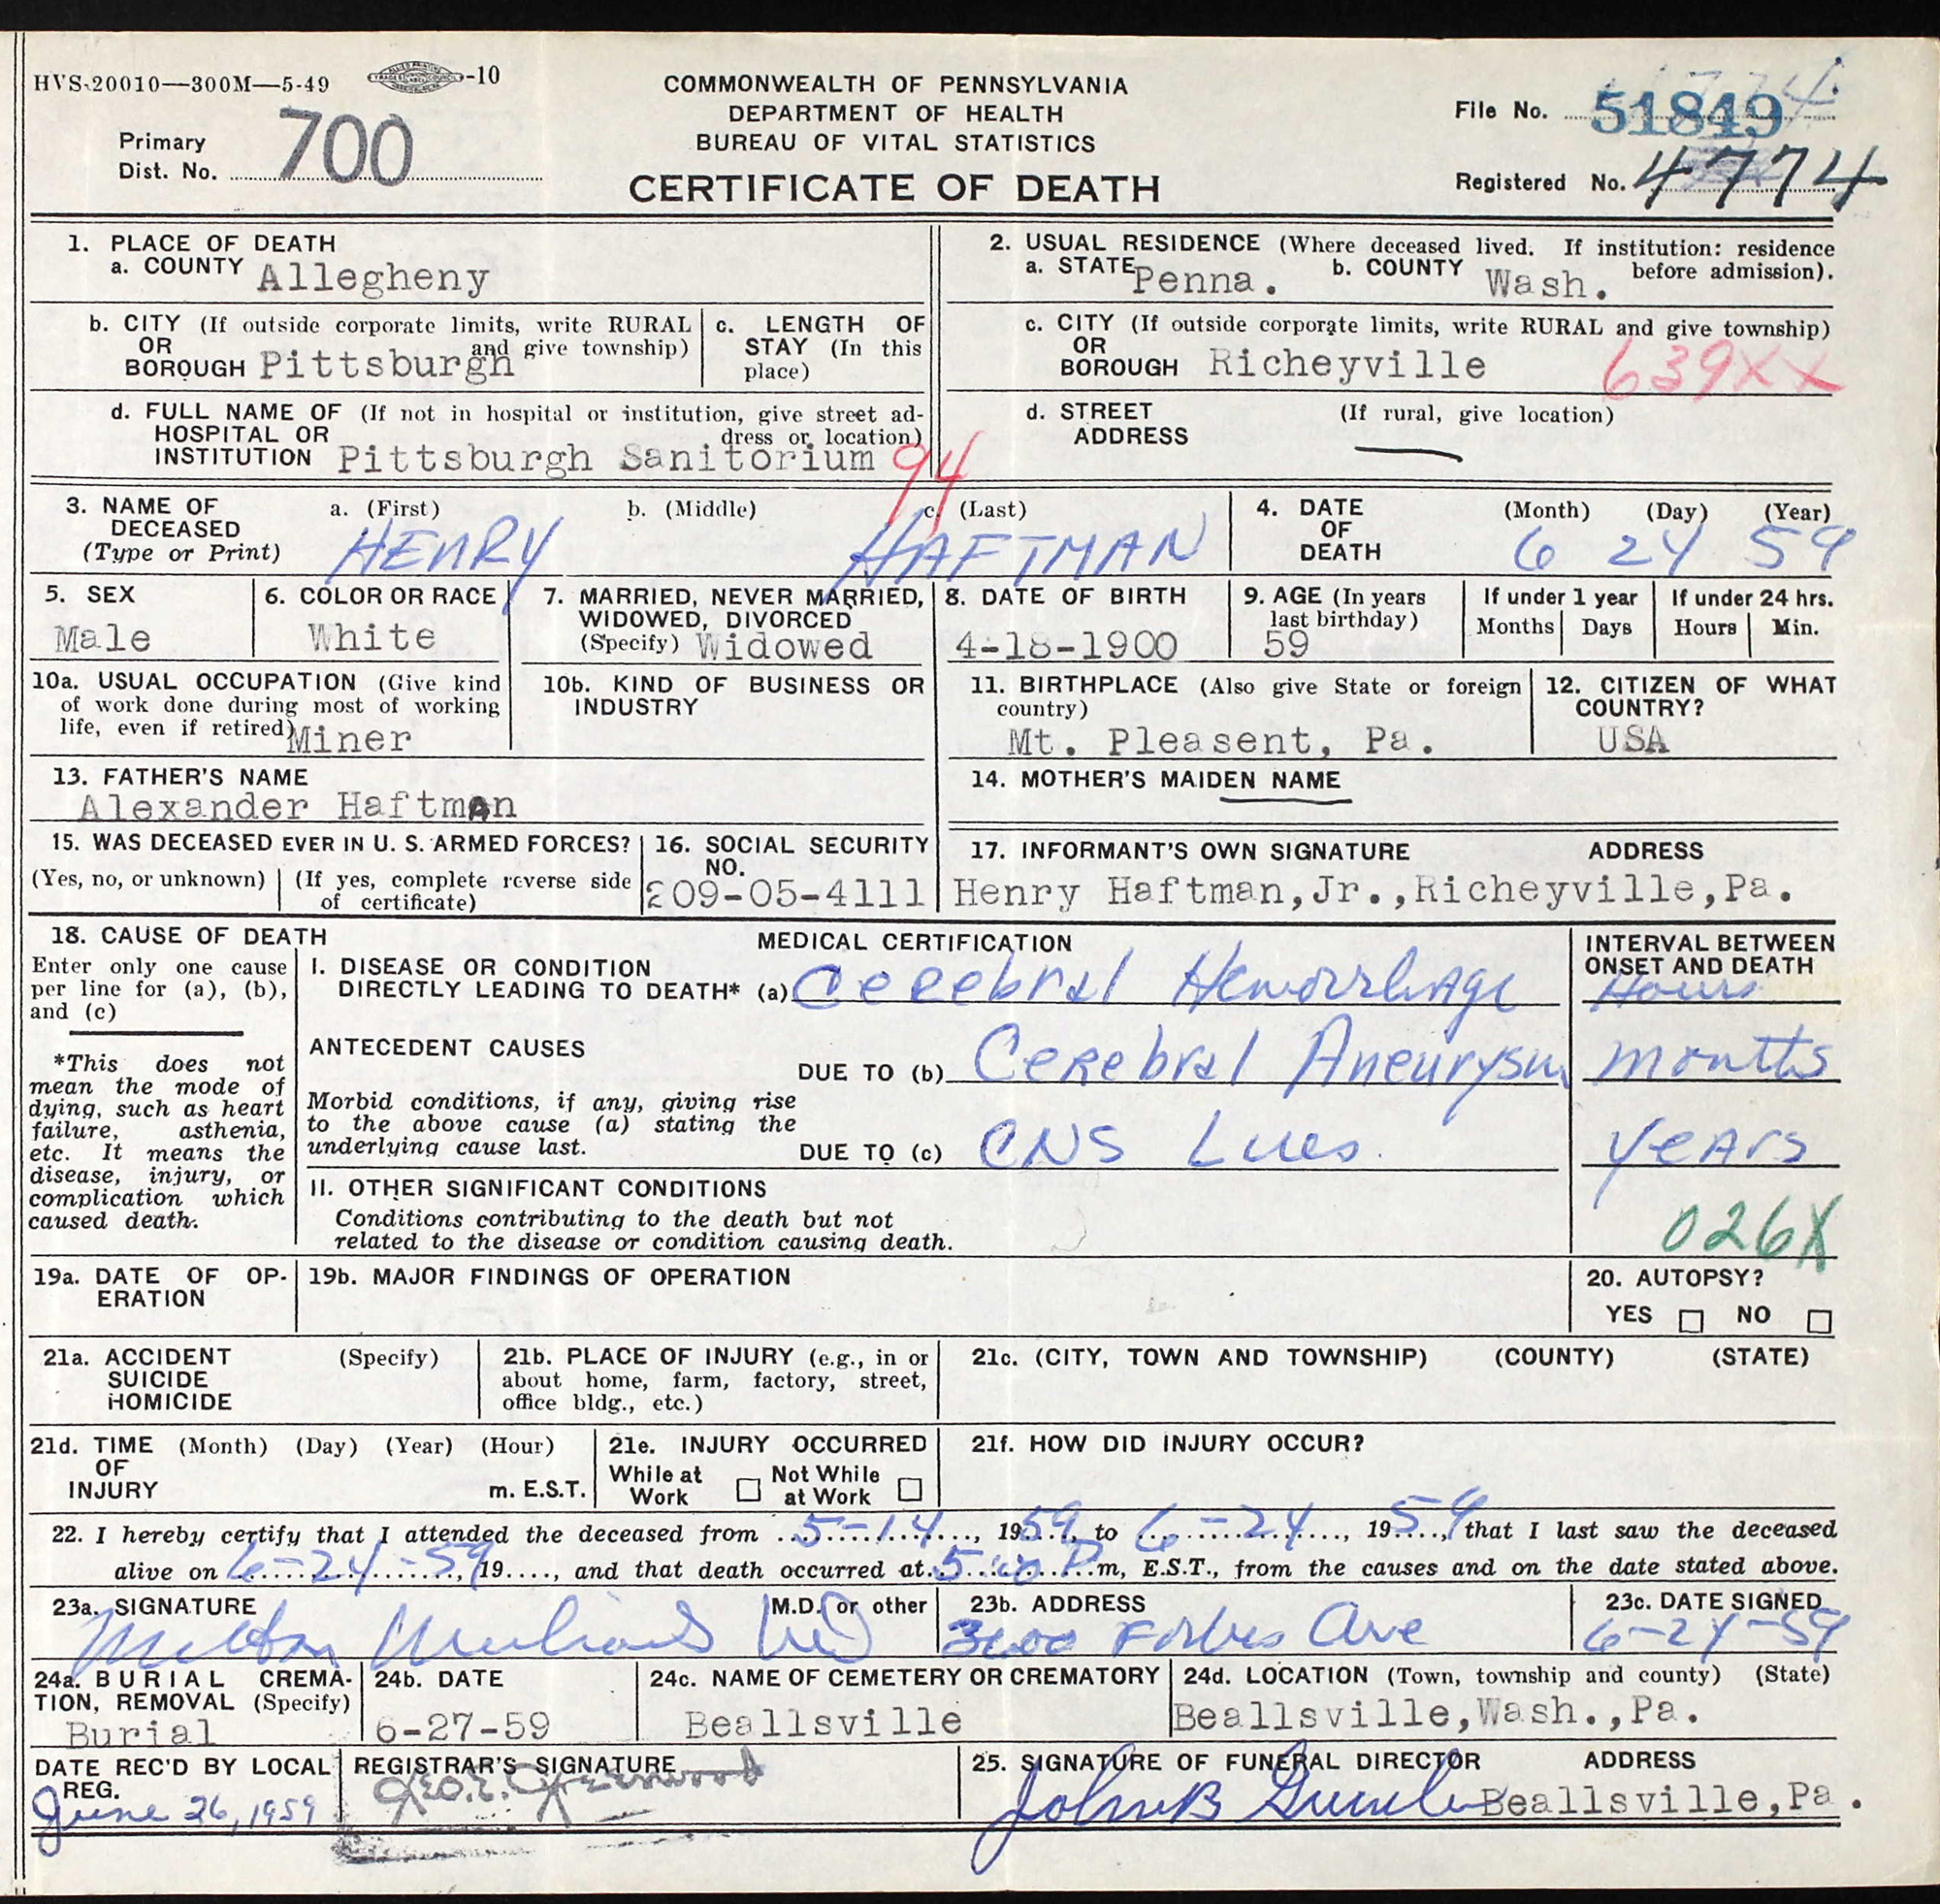 HVS-20010—300M—5-49 -10
COMMONWEALTH OF PENNSYLVANIA
DEPARTMENT OF HEALTH
BUREAU OF VITAL STATISTICS
CERTIFICATE OF DEATH
Primary
Dist. No. 700
File No. 51849
Registered No. 4774
1. PLACE OF DEATH
a. COUNTY Allegheny
2. USUAL RESIDENCE (Where deceased lived. If institution: residence
before admission).
a. STATE Penna. b. COUNTY Wash.
b. CITY (If outside corporate limits, write RURAL
OR and give township)
BOROUGH Pittsburgh
c. LENGTH OF
STAY (In this
place)
c. CITY (If outside corporate limits, write RURAL and give township)
OR
BOROUGH Richeyville 639XX
d. FULL NAME OF (If not in hospital or institution, give street ad-
HOSPITAL OR dress or location)
INSTITUTION Pittsburgh Sanitorium 94
d. STREET (If rural, give location)
ADDRESS
3. NAME OF a. (First) b. (Middle) c. (Last)
DECEASED
(Type or Print) HENRY HAFTMAN
4. DATE (Month) (Day) (Year)
OF
DEATH 6 24 59
5. SEX
Male
6. COLOR OR RACE
White
7. MARRIED, NEVER MARRIED,
WIDOWED, DIVORCED
(Specify) Widowed
8. DATE OF BIRTH
4-18-1900
9. AGE (In years
last birthday)
59
If under 1 year
Months Days
If under 24 hrs.
Hours Min.
10a. USUAL OCCUPATION (Give kind
of work done during most of working
life, even if retired) Miner
10b. KIND OF BUSINESS OR
INDUSTRY
11. BIRTHPLACE (Also give State or foreign
country)
Mt. Pleasent, Pa.
12. CITIZEN OF WHAT
COUNTRY?
USA
13. FATHER'S NAME
Alexander Haftman
14. MOTHER'S MAIDEN NAME
15. WAS DECEASED EVER IN U. S. ARMED FORCES?
(Yes, no, or unknown) (If yes, complete reverse side
of certificate)
16. SOCIAL SECURITY
NO.
209-05-4111
17. INFORMANT'S OWN SIGNATURE ADDRESS
Henry Haftman,Jr.,Richeyville,Pa.
18. CAUSE OF DEATH
Enter only one cause
per line for (a), (b),
and (c)
*This does not
mean the mode of
dying, such as heart
failure, asthenia,
etc. It means the
disease, injury, or
complication which
caused death.
MEDICAL CERTIFICATION
I. DISEASE OR CONDITION
DIRECTLY LEADING TO DEATH* (a) Cerebral Hemorrhage
ANTECEDENT CAUSES
DUE TO (b) Cerebral Aneurysm
Morbid conditions, if any, giving rise
to the above cause (a) stating the
underlying cause last.
DUE TO (c) CNS Lues.
II. OTHER SIGNIFICANT CONDITIONS
Conditions contributing to the death but not
related to the disease or condition causing death.
INTERVAL BETWEEN
ONSET AND DEATH
Hours
months
years
026X
19a. DATE OF OP-
ERATION
19b. MAJOR FINDINGS OF OPERATION
20. AUTOPSY?
YES NO
21a. ACCIDENT (Specify)
SUICIDE
HOMICIDE
21b. PLACE OF INJURY (e.g., in or
about home, farm, factory, street,
office bldg., etc.)
21c. (CITY, TOWN AND TOWNSHIP) (COUNTY) (STATE)
21d. TIME (Month) (Day) (Year) (Hour)
OF
INJURY m. E.S.T.
21e. INJURY OCCURRED
While at Not While
Work at Work
21f. HOW DID INJURY OCCUR?
22. I hereby certify that I attended the deceased from 5-14, 1959, to 6-24, 1959, that I last saw the deceased
alive on 6-24-59, 19...., and that death occurred at 5:00 P m, E.S.T., from the causes and on the date stated above.
23a. SIGNATURE M.D. or other
Milton MD
23b. ADDRESS
3600 Forbes Ave
23c. DATE SIGNED
6-24-59
24a. BURIAL CREMA-
TION, REMOVAL (Specify)
Burial
24b. DATE
6-27-59
24c. NAME OF CEMETERY OR CREMATORY
Beallsville
24d. LOCATION (Town, township and county) (State)
Beallsville,Wash.,Pa.
DATE REC'D BY LOCAL
REG.
June 26, 1959
REGISTRAR'S SIGNATURE
Geo. E. Greenwood
25. SIGNATURE OF FUNERAL DIRECTOR ADDRESS
John B Beallsville,Pa.